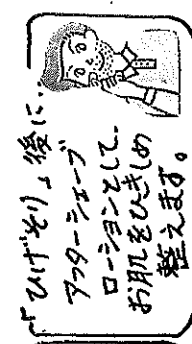 「ひげそり」後に…
アフターシェーブ
ローションとして、
お肌をひきしめ
整えます。